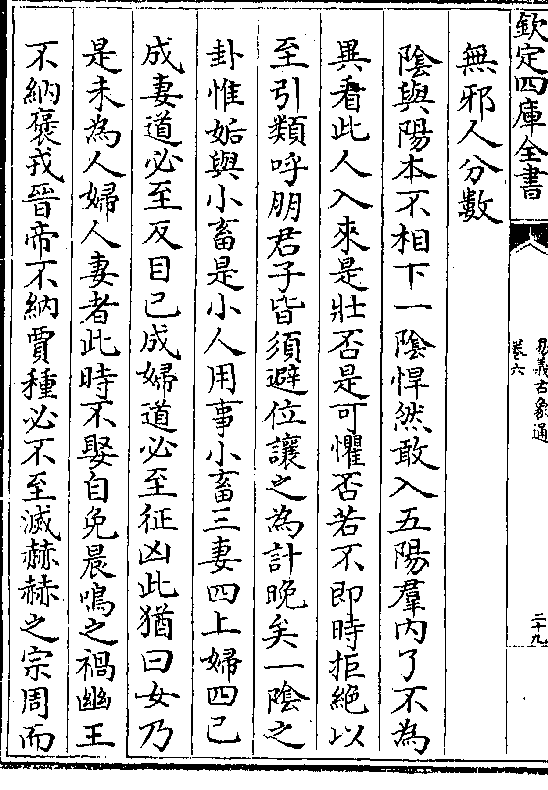 欽定四庫全書
易義古象通
卷六
二十九
無邪人分數
陰與陽本不相下一陰悍然敢入五陽羣内了不為
異看此人入來是壯否是可懼否若不即時拒絶以
至引類呼朋君子皆須避位讓之為計晚矣一陰之
卦惟姤與小畜是小人用事小畜三妻四上婦四已
成妻道必至反目已成婦道必至征凶此猶曰女乃
是未為人婦人妻者此時不娶自免晨鳴之禍幽王
不納褒戎晉帝不納賈種必不至滅赫赫之宗周而